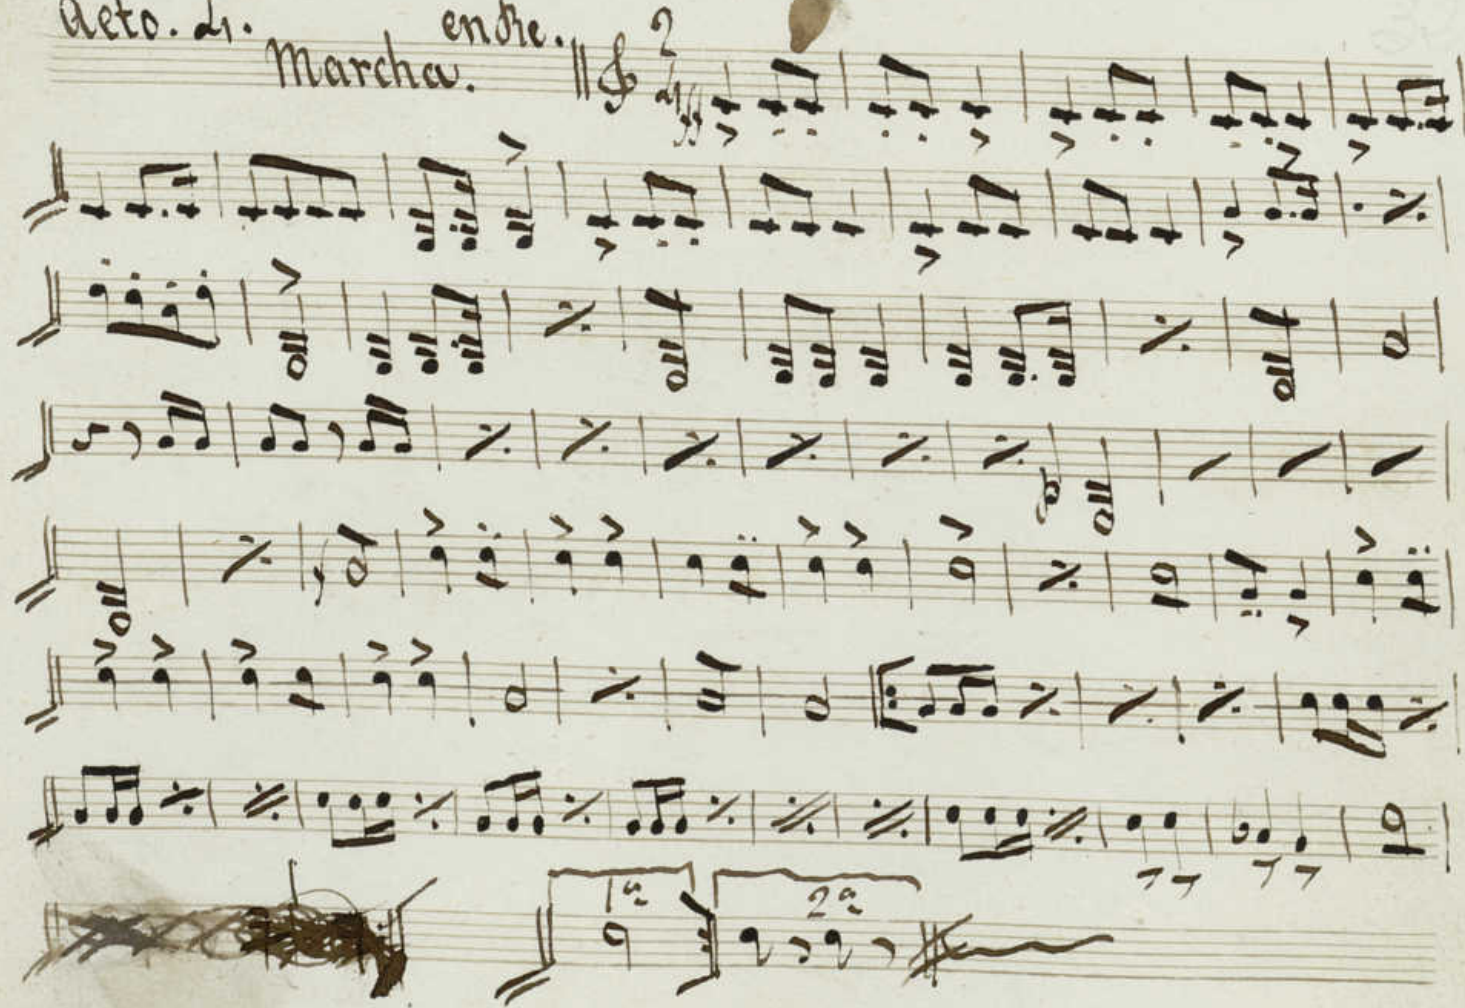 Acto. 4.
enRe.
Marcha.
2
4
ff
1ª
2ª